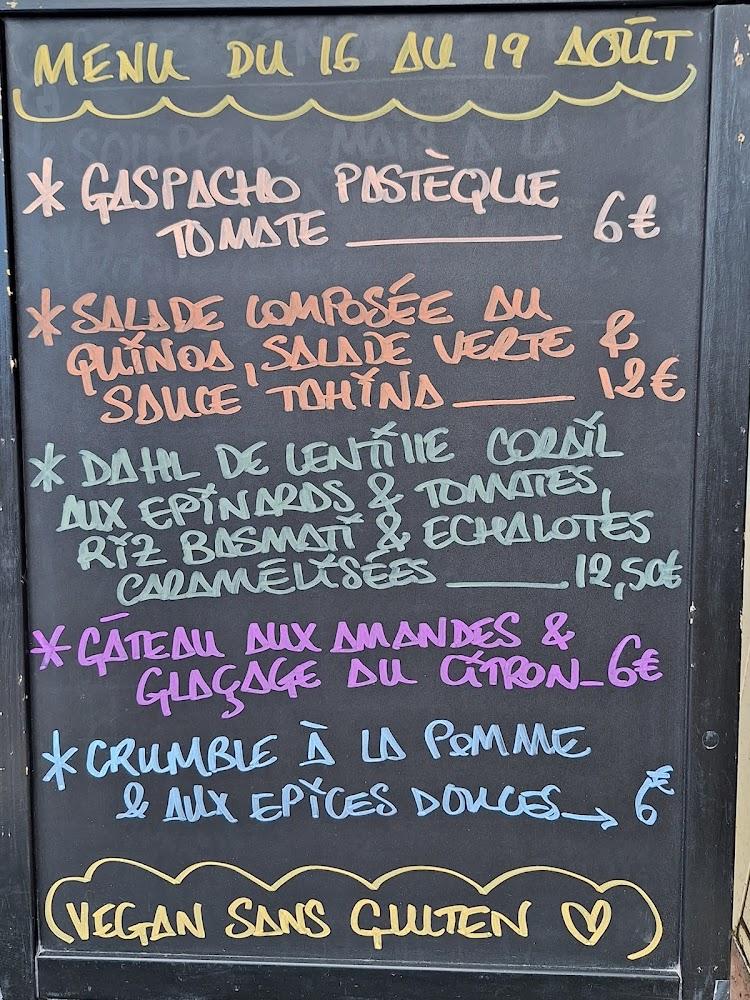 MENU DU 16 AU 19 AOÛT
* GASPACHO PASTÈQUE
TOMATE ________ 6€
* SALADE COMPOSÉE AU
QUINOA, SALADE VERTE &
SAUCE TAHINA ____ 12€
* DAHL DE LENTILLE CORAIL
AUX EPINARDS & TOMATES,
RIZ BASMATI & ECHALOTES
CARAMÉLISÉES ____ 12,50€
* GÂTEAU AUX AMANDES &
GLAÇAGE AU CITRON_6€
* CRUMBLE À LA POMME
& AUX EPICES DOUCES → 6€
VEGAN SANS GLUTEN ♡